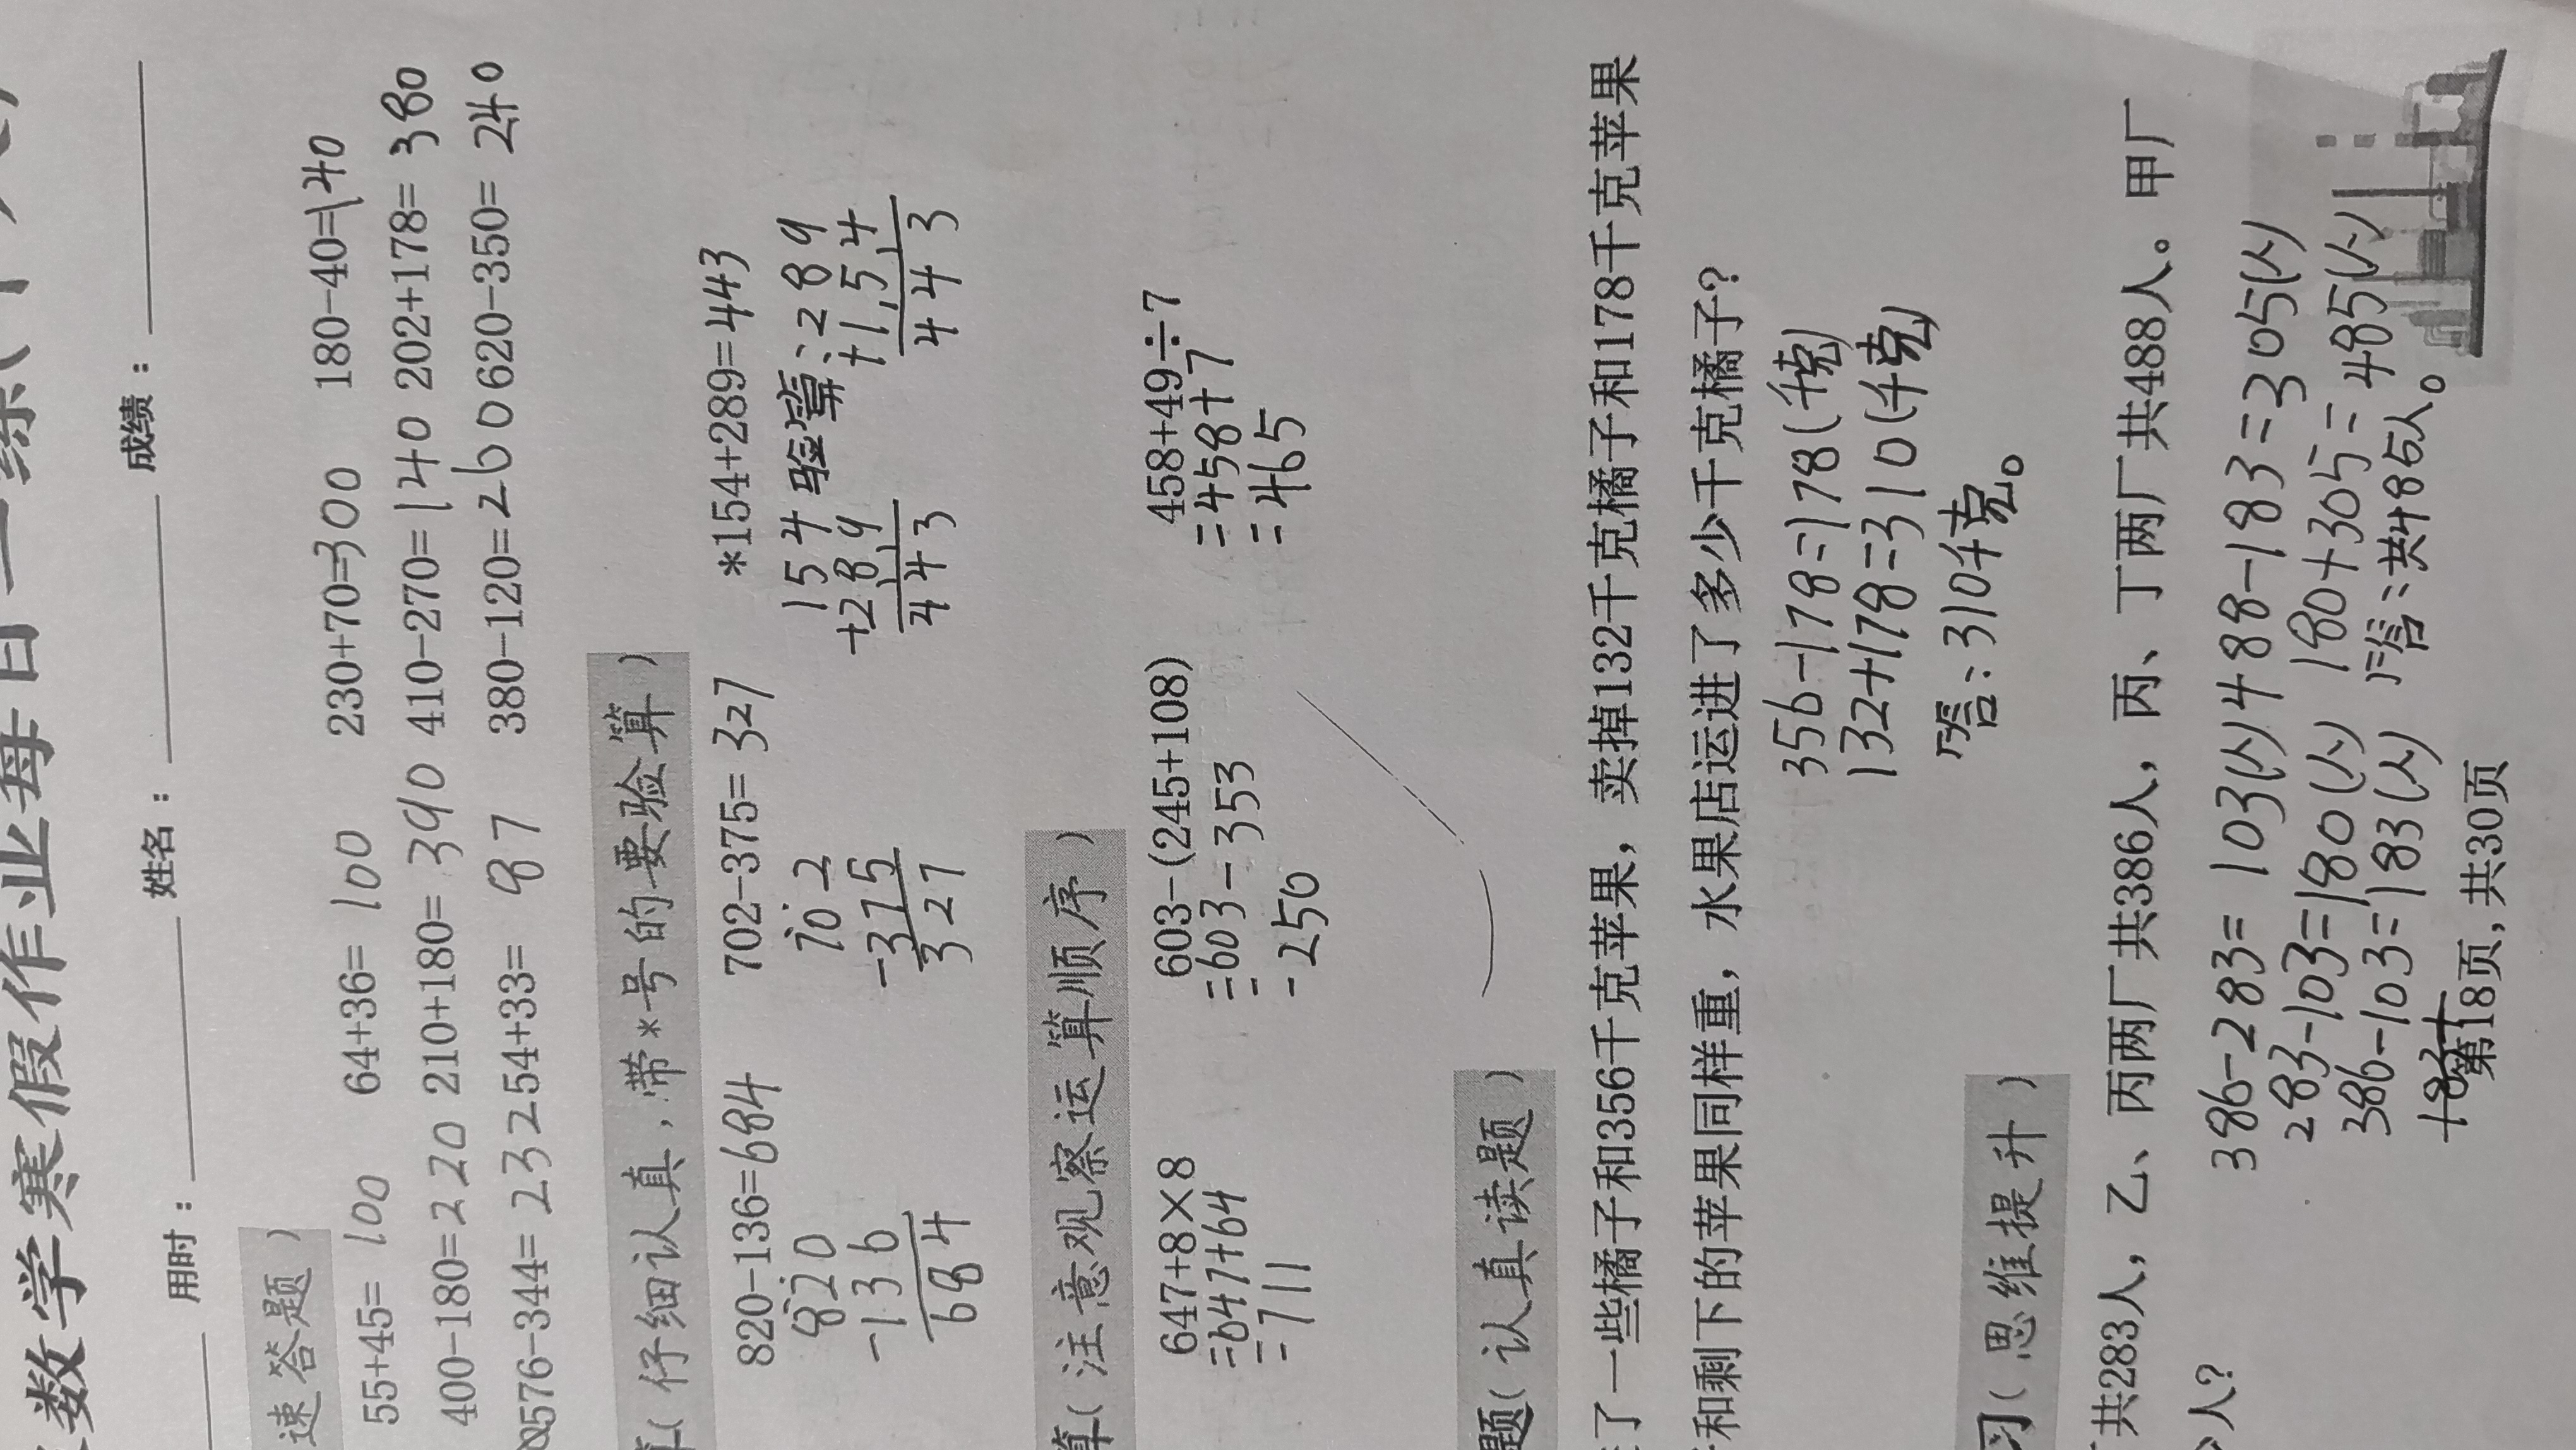 数学寒假作业每日一练
用时： 姓名： 成绩：
速答题）
55+45= 100 64+36= 100 230+70=300 180-40=140
400-180=220 210+180= 390 410-270=140 202+178= 380
576-344= 232 54+33= 87 380-120=260 620-350= 240
算（仔细认真，带*号的要验算）
820-136=684 702-375= 327 *154+289=443
820 702 154 验算：289
-136 -375 +289 +154
684 327 443 443
算（注意观察运算顺序）
647+8×8 603-(245+108) 458+49÷7
=647+64 =603-353 =458+7
=711 =250 =465
题（认真读题）
了一些橘子和356千克苹果，卖掉132千克橘子和178千克苹果
和剩下的苹果同样重，水果店运进了多少千克橘子？
356-178=178(千克)
132+178=310(千克)
答：310千克。
习（思维提升）
共283人，乙、丙两厂共386人，丙、丁两厂共488人。甲厂
人？
386-283= 103(人) 488-183=305(人)
283-103=180(人) 180+305=485(人)
386-103=183(人) 答：共485人。
第18页，共30页